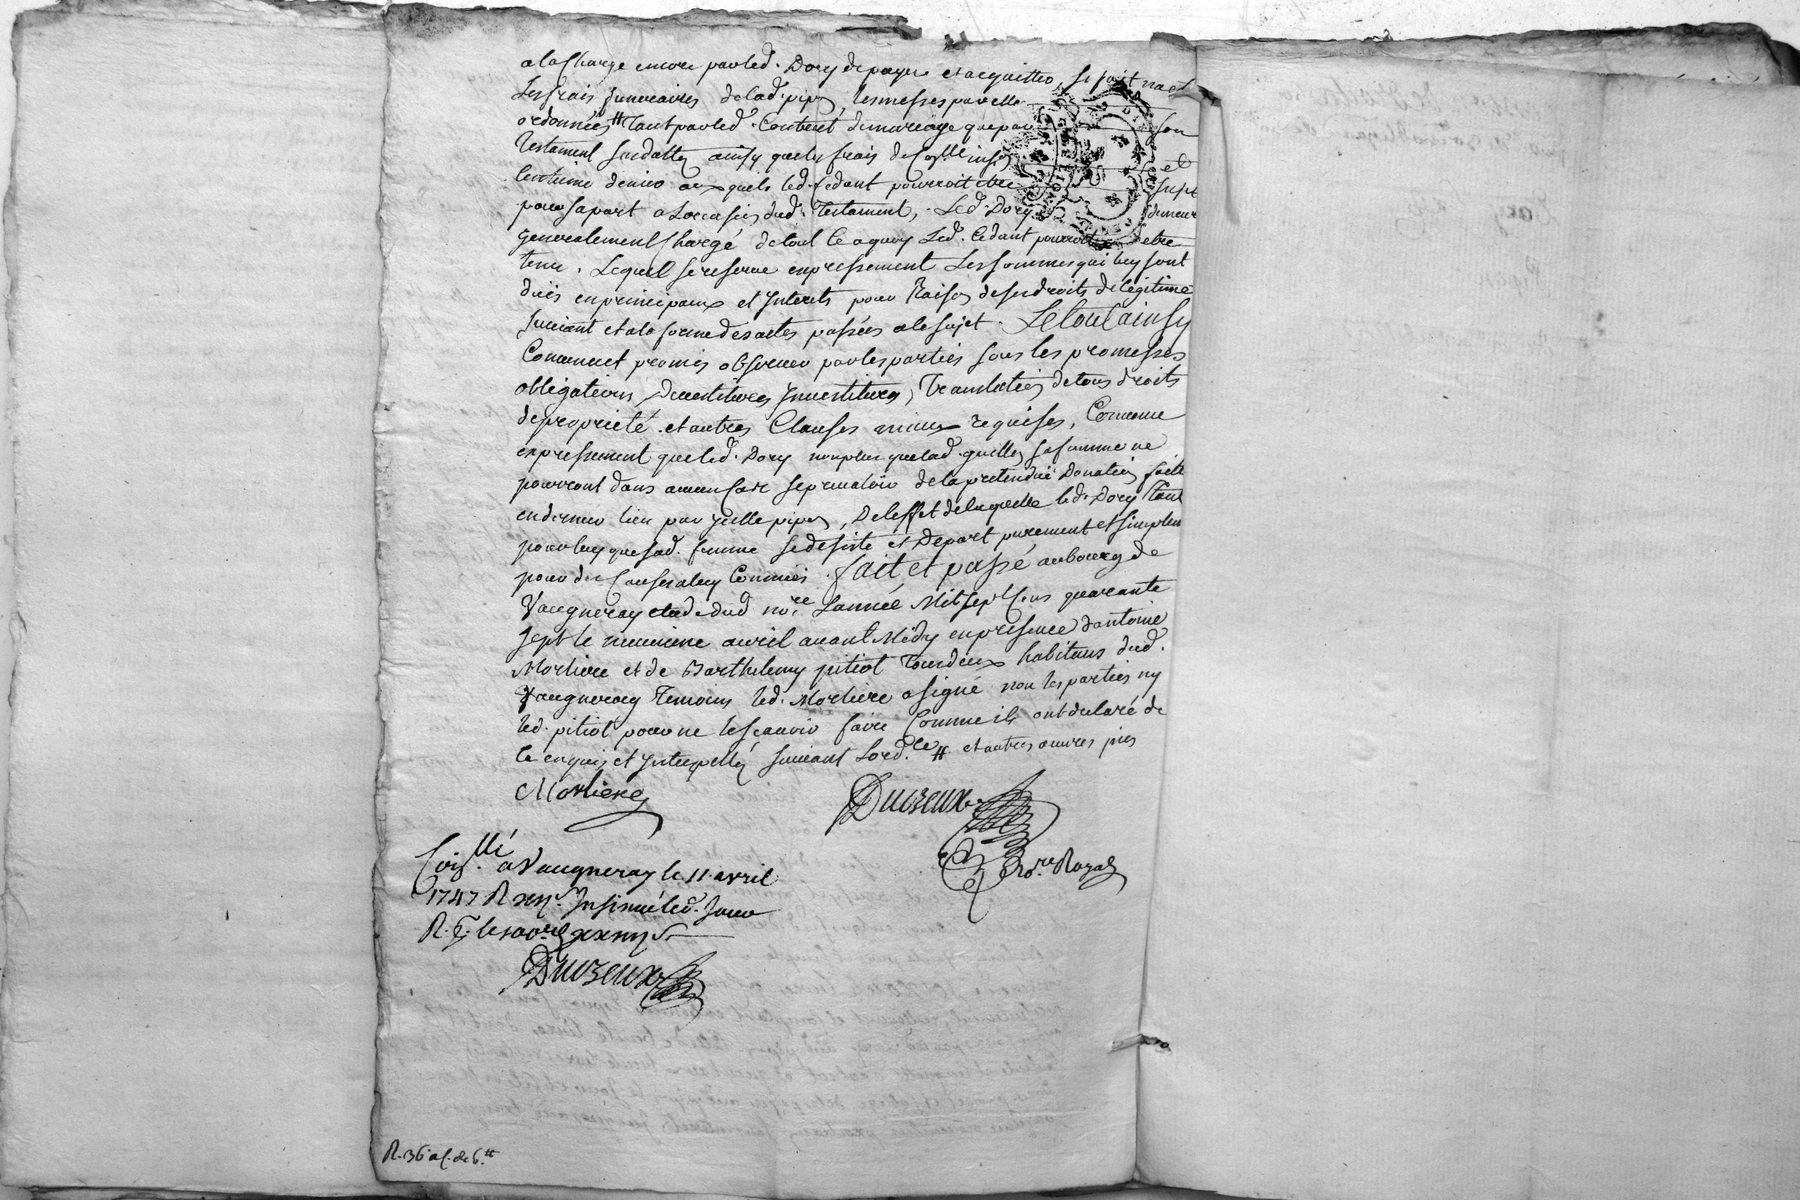 a la Charge encore par led. Dory de payer et acquitter, si fait n'a et
les frais funeraires de lad. pipon, les messes par elle
ordonnées # Tant par led. Contract de mariage que par son
Testament susdatté, ainsy que les frais de et
Centiéme denier auxquels led. Cedant pourroit être sujet
pour sa part a l'occasion dud. Testament, Led. Dory demeur
generalement Chargé de tout ce a quoy Led. Cedant pourroit etre
tenu. Lequel se reserve expressement Les sommes qui luy sont
duës en principaux et Interets pour Raison de ses droits de légitime
suivant et a la forme des actes passées a le sujet. Le tout ainsy
Convenu et promis observer par les parties sous les promesses
obligations, Devestitures Investitures, Translation de tous droits
de proprieté et autres Clauses mieux requises, Comme
expressement que led. Dory non plus que lad. guillon sa femme ne
pourront dans aucun Cas se prevaloir de la pretenduë Donation faite
en dernier lieu par icelle pipon, De l'effet de laquelle led. Dory Tant
pour luy que sad. femme se desiste et Depart purement et simplem
pour de Conventions Commises. fait et passé au bourg de
Vaugneray etude dud. no.re L'année Mil sept Cens quarante
sept le neuvieme avril avant Midy en presence d'antoine
Morliere et de Barthelemy pitiot Tous deux habitans dud.
Vaugneray Temoins led. Morliere a signé non les parties ny
led. pitiot pour ne le sçavoir faire Comme ils ont declaré de
ce enquis et Interpellé suivant L'ord.ce # et autres œuvres pies
Morliere
Ducreux
No.re Royal
Con.llé a Vaugneray le 11 avril
1747 R Insinué led. Jour
R.
Ducreux
R. 36 s. de 6.tt